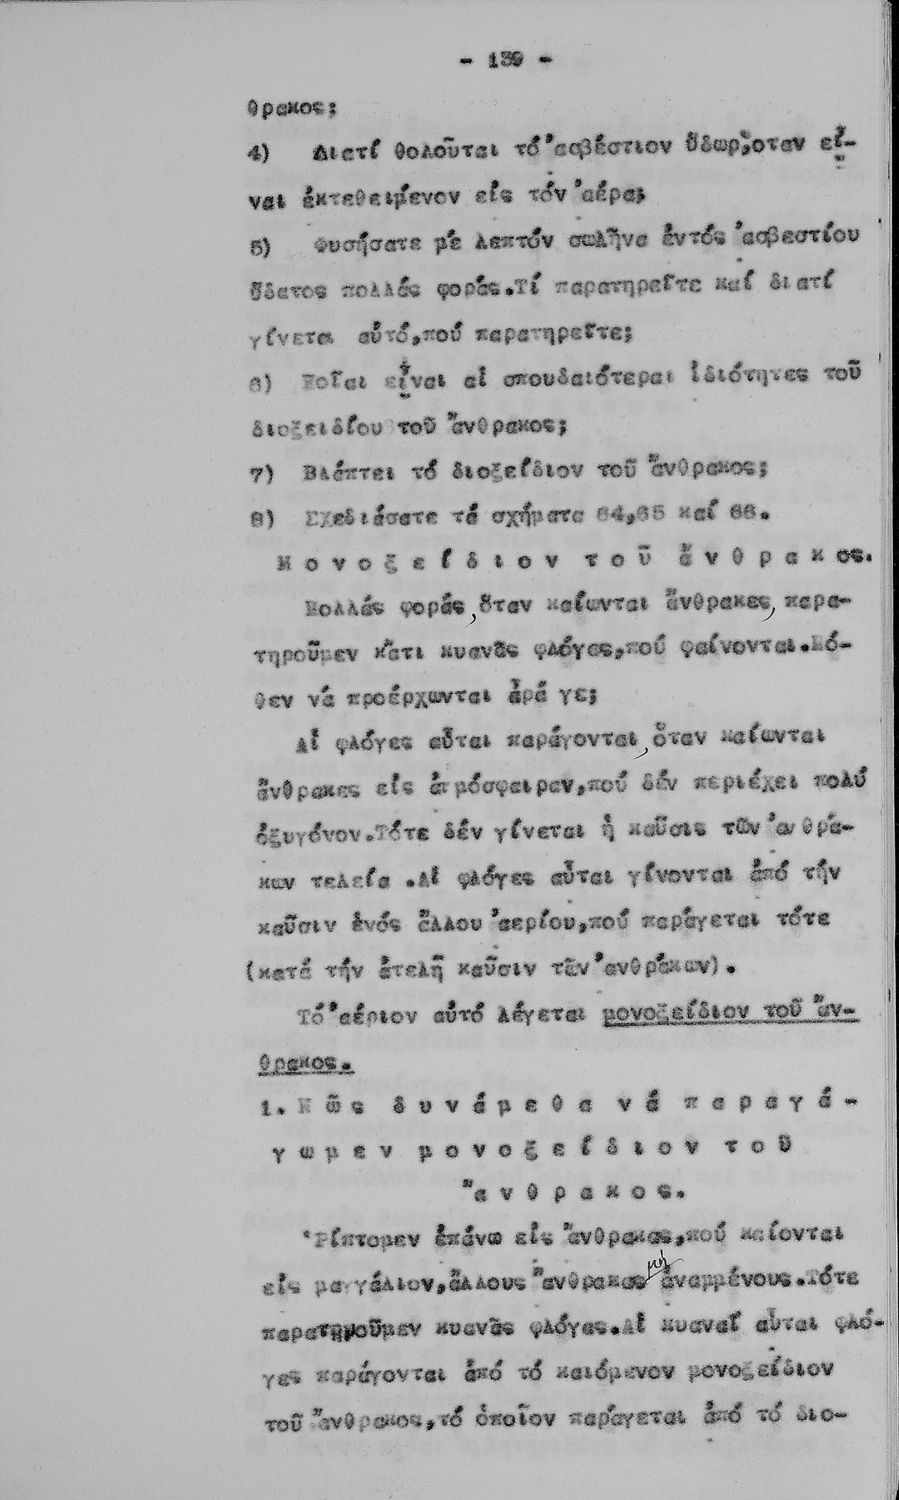 - 139 -
θρακος;
4) Διατί θολοῦται τό ἀσβέστιον ὕδωρ, ὅταν εἶ-
ναι ἐκτεθειμένον εἰς τόν ἀέρα;
5) Φυσήσατε μέ λεπτόν σωλῆνα ἐντός ἀσβεστίου
ὕδατος πολλάς φοράς. Τί παρατηρεῖτε καί διατί
γίνεται αὐτό, πού παρατηρεῖτε;
6) Ποῖαι εἶναι αἱ σπουδαιότεραι ἰδιότητες τοῦ
διοξειδίου τοῦ ἄνθρακος;
7) Βλάπτει τό διοξείδιον τοῦ ἄνθρακος;
8) Σχεδιάσατε τά σχήματα 64, 65 καί 66.
Μονοξείδιον τοῦ ἄνθρακος.
Πολλάς φοράς, ὅταν καίωνται ἄνθρακες, παρα-
τηροῦμεν κἄτι κυανᾶς φλόγας, πού φαίνονται. Πό-
θεν νά προέρχωνται ἆρά γε;
Αἱ φλόγες αὗται παράγονται, ὅταν καίωνται
ἄνθρακες εἰς ἀτμόσφαιραν, πού δέν περιέχει πολύ
ὀξυγόνον. Τότε δέν γίνεται ἡ καῦσις τῶν ἀνθρά-
κων τελεία. Αἱ φλόγες αὗται γίνονται ἀπό τήν
καῦσιν ἑνός ἄλλου ἀερίου, πού παράγεται τότε
(κατά τήν ἀτελῆ καῦσιν τῶν ἀνθράκων).
Τό ἀέριον αὐτό λέγεται μονοξείδιον τοῦ ἄν-
θρακος.
1. Πῶς δυνάμεθα νά παραγά-
γωμεν μονοξείδιον τοῦ
ἄνθρακος.
Ῥίπτομεν ἐπάνω εἰς ἄνθρακας, πού καίονται
εἰς μαγγάλιον, ἄλλους ἄνθρακας μή ἀναμμένους. Τότε
παρατηροῦμεν κυανᾶς φλόγας. Αἱ κυαναῖ αὗται φλό-
γες παράγονται ἀπό τό καιόμενον μονοξείδιον
τοῦ ἄνθρακος, τό ὁποῖον παράγεται ἀπό τό διο-